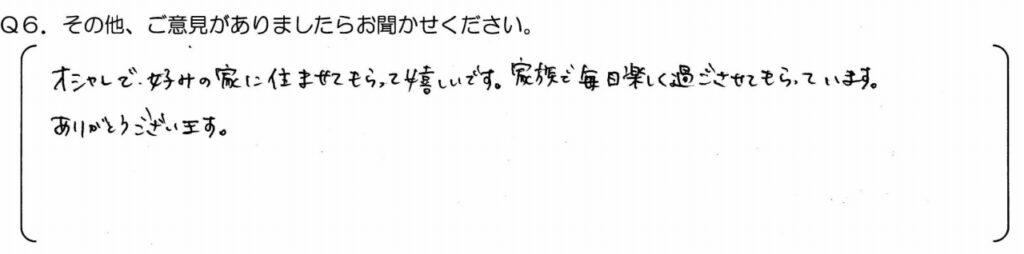 Q6．その他、ご意見がありましたらお聞かせください。
オシャレで好みの家に住ませてもらって嬉しいです。家族で毎日楽しく過ごさせてもらっています。
ありがとうございます。